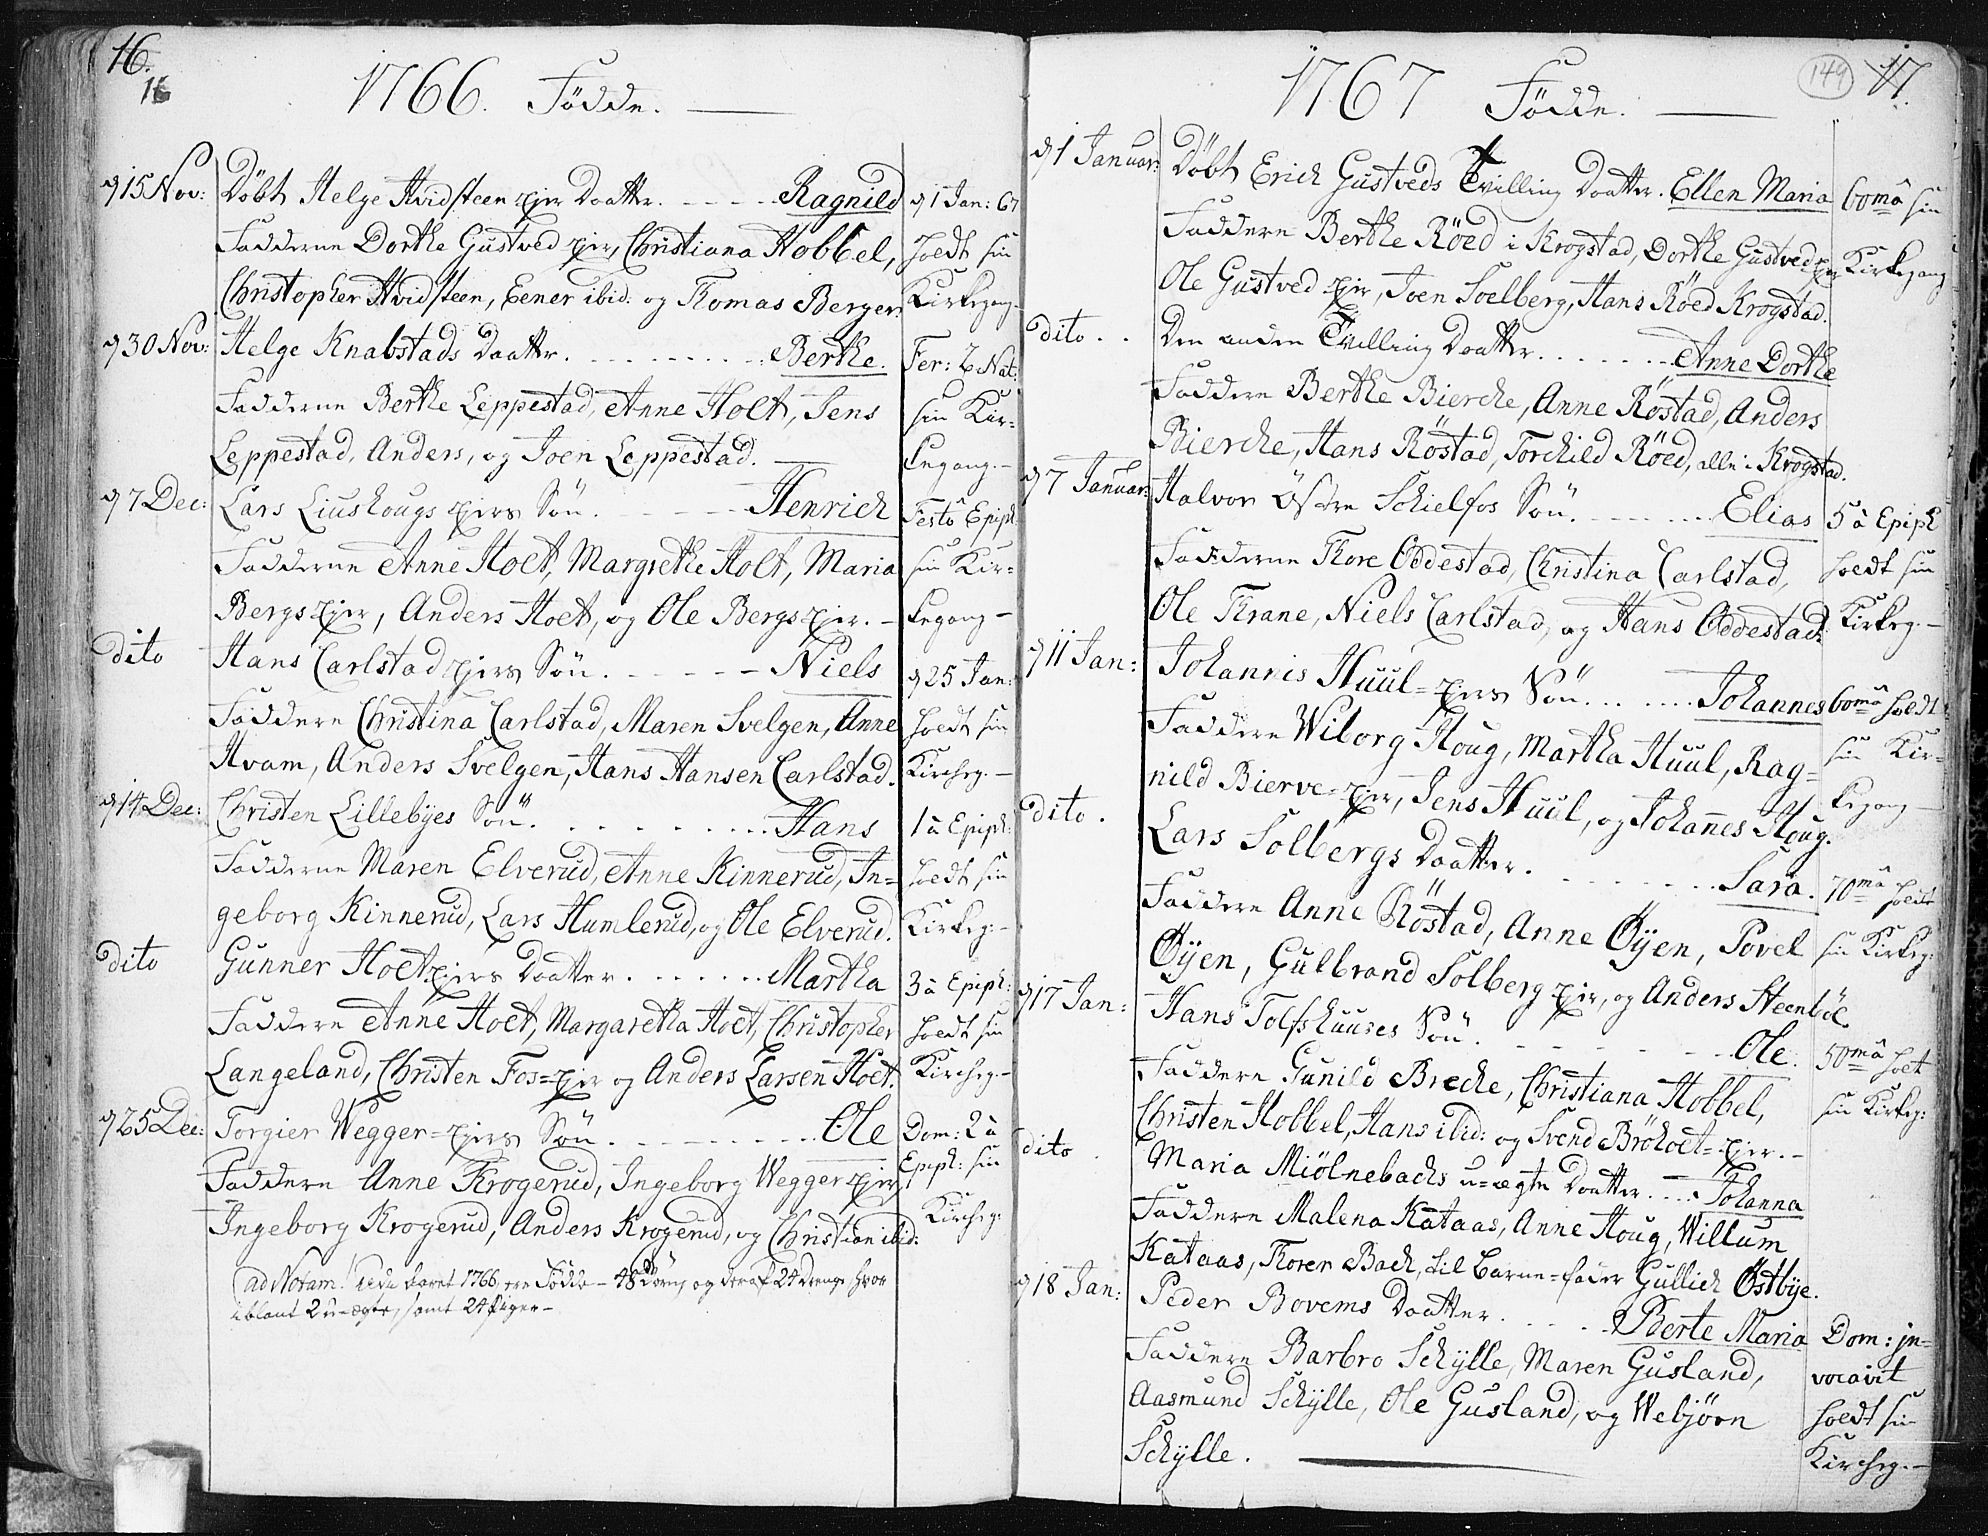 16.
16
1766. Födde.
d 15 Nov: Döbt Helge Hvidsteen ejer Daatter. Ragnild
Fadderne Dorthe Gustved ejer, Christiana Hobbel,
Christopher Hvidsteen, Eener ibid: og Thomas Berger.
d 1 Jan: 67
holdt sin
Kirkegang.
d 30 Nov: Helge Knabstads Daatter. Berthe.
Fadderne Berthe Leppestad, Anne Holt, Jens
Leppestad, Anders, og Joen Leppestad.
Fer: 2 Nat:
sin Kir=
kegang.
d 7 Dec: Lars Liushougs ejers Sön. Henrich
Fadderne Anne Holt, Margrethe Holt, Maria
Bergs ejer, Anders Holt, og Ole Bergs ejer.
Festo Epiph
sin Kir=
kegang
dito Hans Carlstad ejers Sön. Niels
Faddere Christina Carlstad, Maren Svelgen, Anne
Hvam, Anders Svelgen, Hans Hansen Carlstad.
d 25 Jan:
holdt sin
Kircheg.
d 14 Dec: Christen Lillebÿes Sön. Hans
Fadderne Maren Elverud, Anne Kinnerud, In=
geborg Kinnerud, Lars Humlerud, og Ole Elverud.
1 à Epiph:
holdt sin
Kirkeg:
dito Gunner Holt ejers Daatter. Martha
Faddere Anne Holt, Margaretha Holt, Christopher
Langeland, Christen Fos=ejer og Anders Larsen Holt.
3 à Epiph:
holdt sin
Kircheg.
d 25 Dec: Torgier Wegger=ejers Sön. Ole
Faddere Anne Krogerud, Ingeborg Wegger ejer,
Ingeborg Krogerud, Anders Krogerud, og Christian ibid:
Dom: 2 à
Epiph: sin
Kircheg:
ad Notam! aaret 1766, ere Födde 48 Börn, og deraf 24 Drenge, hvor
iblant 2 u-ægte, samt 24 Piger
149
17.
1767 Födde.
d 1 Januar: Döbt Erich Gustveds Tvilling Daatter. Ellen Maria
Faddere Berthe Röed i Krogstad, Dorthe Gustved ejer
Ole Gustved ejer, Joen Soelberg, Hans Röed Krogstad.
6omâ sin
Kirkegang
dito. Den anden Tvilling Daatter. Anne Dorthe
Faddere Berthe Bierche, Anne Röstad, Anders
Bierche, Hans Röstad, Torchild Röed, alle i Krogstad.
d 7 Januar: Halvor Östre Schielfos Sön. Elias
Fadderne Thore Oddestad, Christina Carlstad,
Ole Thrane, Niels Carlstad, og Hans Oddestad.
5 à Epiph
holdt sin
Kirkeg.
d 11 Jan: Johannis Huul=ejers Sön. Johannes
Faddere Wiborg Houg, Martha Huul, Rag=
nild Bierve=ejer, Jens Huul, og Johan̄es Houg.
6omâ holdt
sin Kir=
kegang
dito. Lars Solbergs Daatter. Sara.
Faddere Anne Röstad, Anne Öÿen, Povel
Öÿen, Gulbrand Solberg ejer, og Anders Steenböl.
7omâ holdt
sin Kirkeg:
d 17 Jan: Hans Tolfshuuses Sön. Ole.
Faddere Gunild Breche, Christiana Hobbel,
Christen Hobbel, Hans ibid: og Svend Bröholt=ejer.
5omâ holt
sin Kirkeg:
dito Maria Miölnebachs u=ægte Daatter. Johanna
Faddere Malena Kataas, Anne Houg, Willum
Kataas, Thoren Bach, til Barne=fader Gullich Östbÿe.
d 18 Jan: Peder Bovems Daatter. Berte Maria
Faddere Barbro Schÿlle, Maren Gusland,
Aasmund Schÿlle, Ole Gusland, og Webjörn
Schÿlle.
Dom: in=
vocavit
holdt sin
Kircheg.